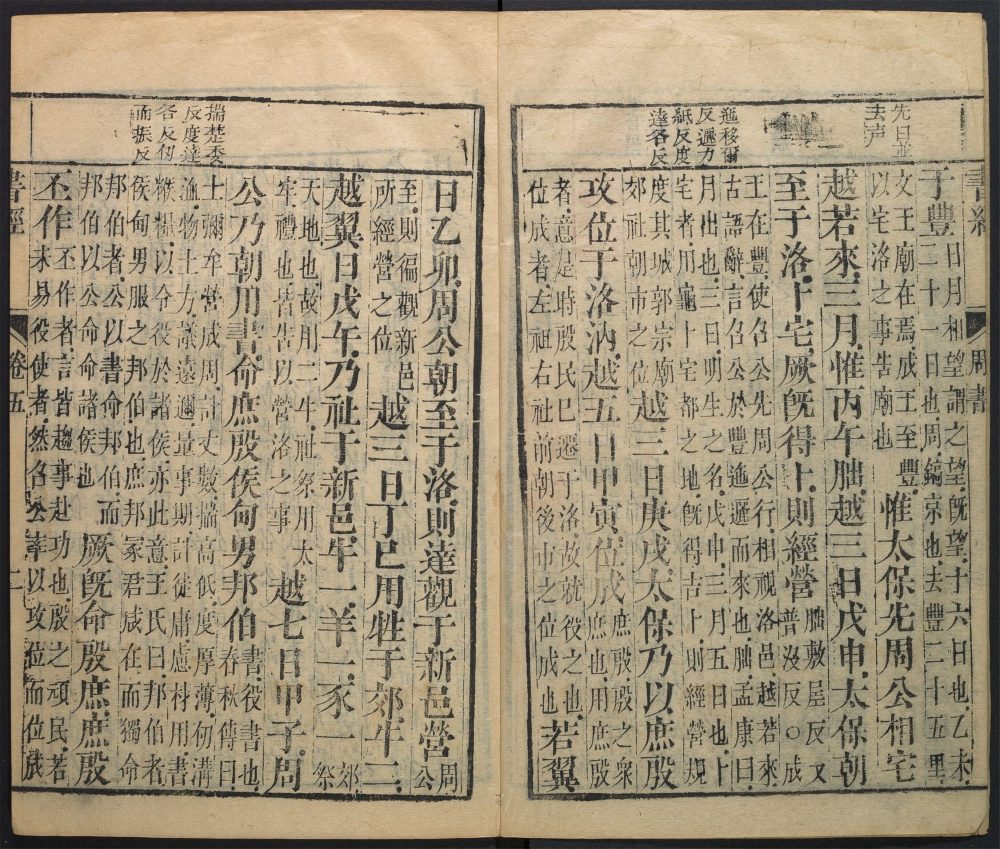 先曰並
去声
迤移爾
反邐力
紙反度
達各反
書經
周書
于豐
日月相望謂之望旣望十六日也乙未
二十一日也周鎬京也去豐二十五里
文王廟在焉成王至豐
以宅洛之事告廟也
惟太保先周公相宅
越若來三月惟丙午朏越三日戊申太保朝
至于洛卜宅厥旣得卜則經營
朏敷尾反又
普沒反○成
王在豐使召公先周公行相視洛邑越若來
古語辭言召公於豐迤邐而來也朏孟康曰
月出也三日明生之名戊申三月五日也卜
宅者用龜卜宅都之地旣得吉卜則經營規
度其城郭宗廟
郊社朝市之位
越三日庚戌太保乃以庶殷
攻位于洛汭越五日甲寅位成
庶殷殷之衆
庶也用庶殷
者意是時殷民已遷于洛故就役之也
位成者左祖右社前朝後市之位成也
若翼
揣楚委
反度達
各反仞
而振反
日乙卯周公朝至于洛則達觀于新邑營
周
公
至則徧觀新邑
所經營之位
越三日丁巳用牲于郊牛二
越翼日戊午乃社于新邑牛一羊一豕一
郊
祭
天地也故用二牛社祭用太
牢禮也皆告以營洛之事
越七日甲子周
公乃朝用書命庶殷侯甸男邦伯
書役書也
春秋傳曰
士彌牟營成周計丈數揣高低度厚薄仞溝
洫物土方議遠邇量事期計徒庸慮材用書
糇糧以令役於諸侯亦此意王氏曰邦伯者
侯甸男服之邦伯也庶邦冢君咸在而獨命
邦伯者公以書命邦伯而
邦伯以公命命諸侯也
厥旣命殷庶庶殷
丕作
丕作者言皆趨事赴功也殷之頑民若
未易役使者然召公率以攻位而位成
書經
卷五
二